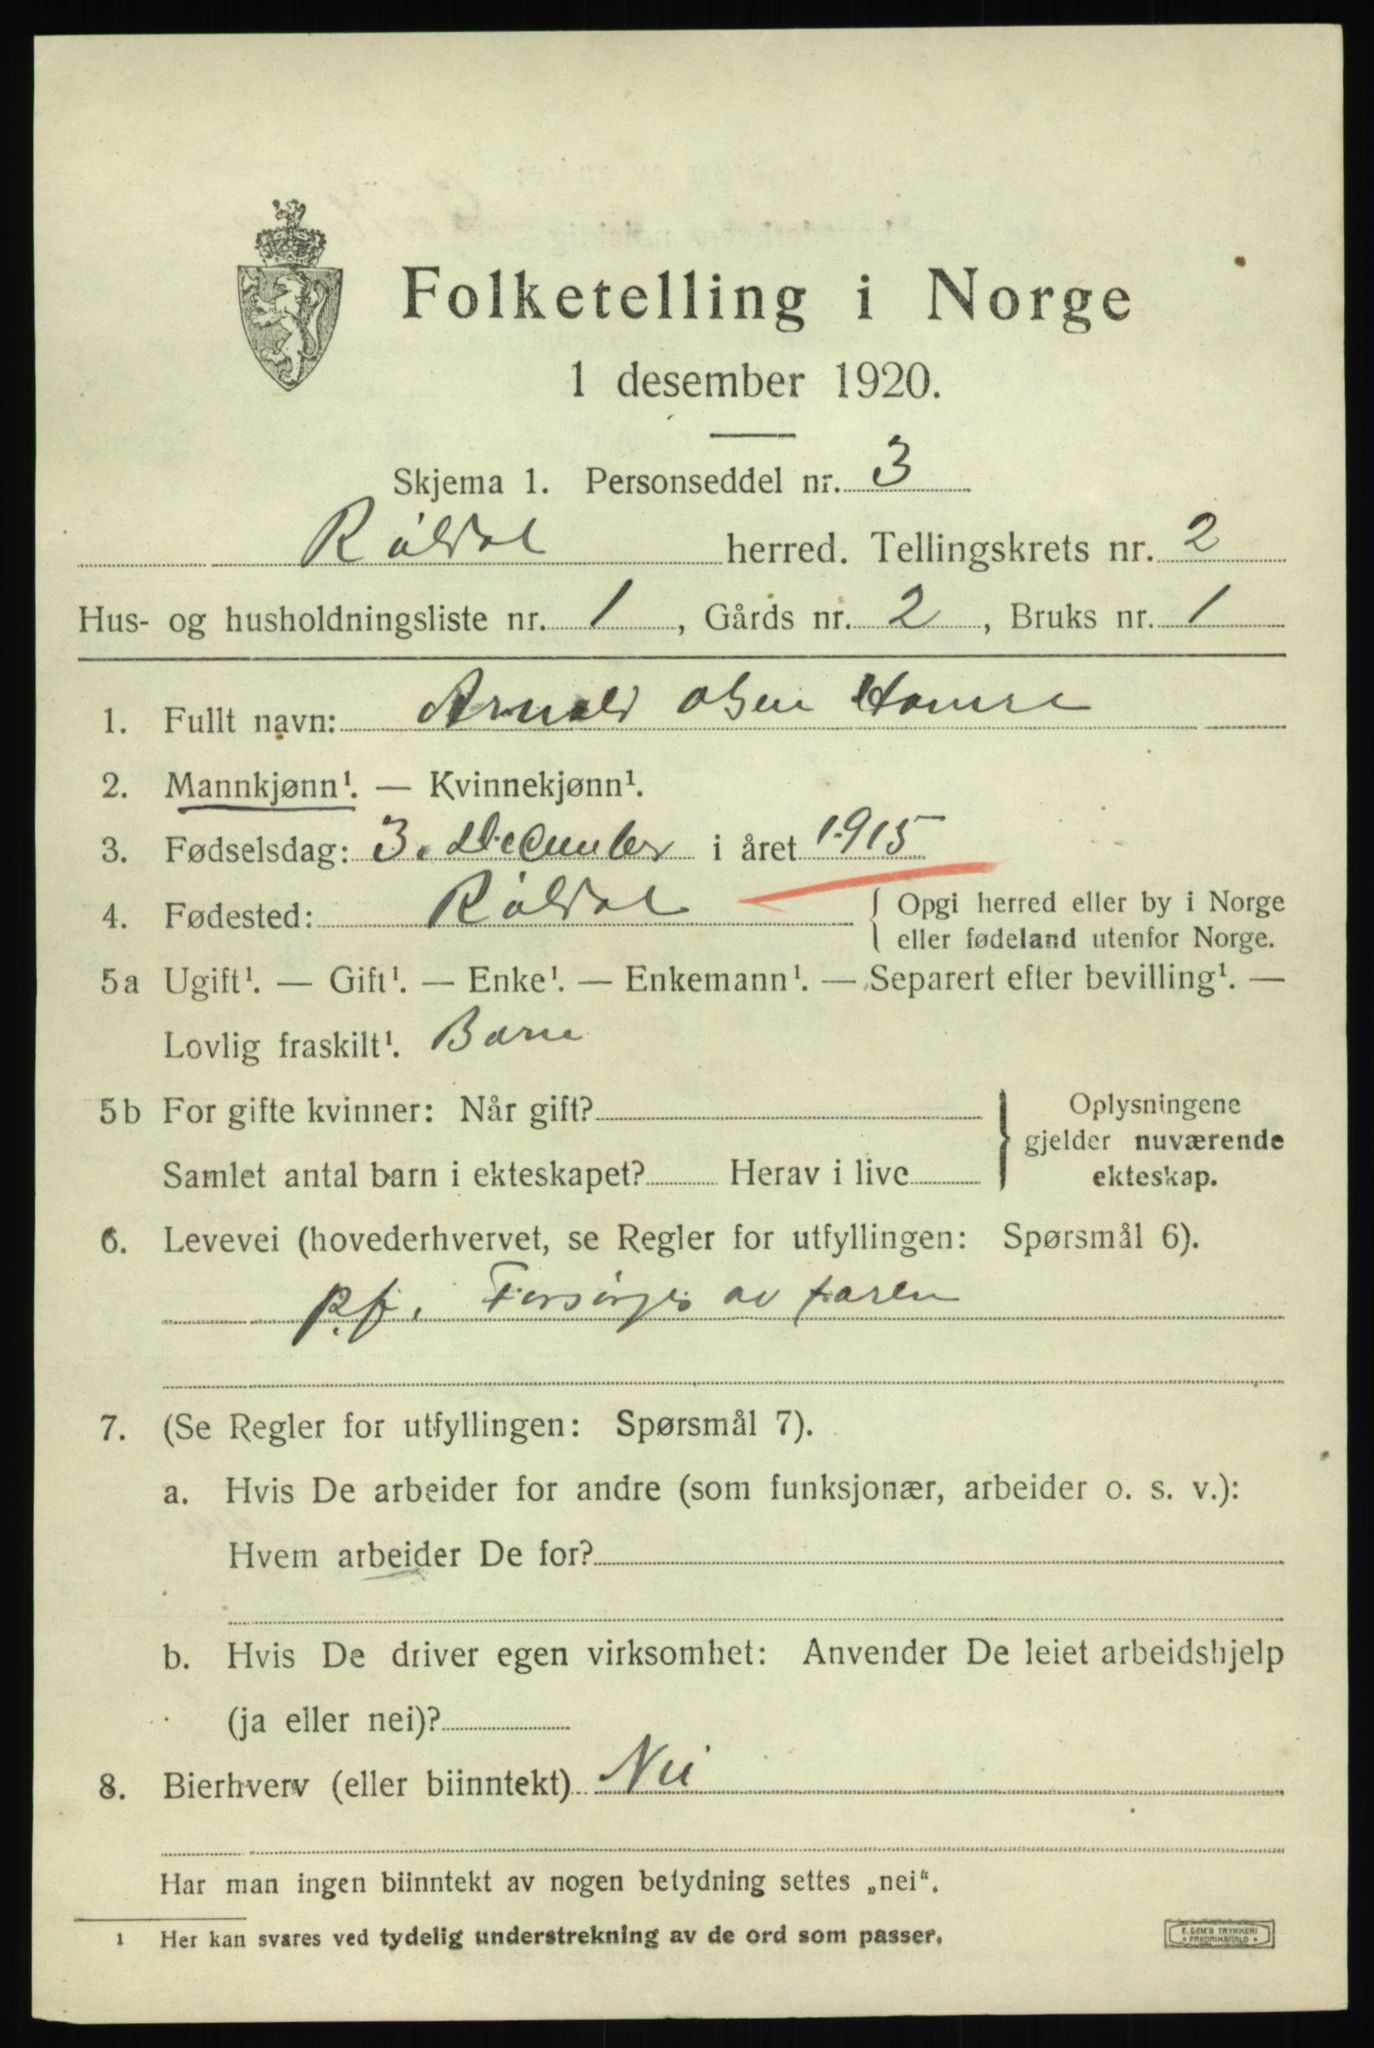 Folketelling i Norge
1 desember 1920.
Skjema 1. Personseddel nr. 3
Røldal herred. Tellingskrets nr. 2
Hus- og husholdningsliste nr. 1, Gårds nr. 2, Bruks nr. 1
1. Fullt navn: Arnold Olsen Hamre
2. Mannkjønn¹. — Kvinnekjønn¹.
3. Fødselsdag: 3. December i året 1915
4. Fødested: Røldal { Opgi herred eller by i Norge
eller fødeland utenfor Norge.
5a Ugift¹. — Gift¹. — Enke¹. — Enkemann¹. — Separert efter bevilling¹. —
Lovlig fraskilt¹. Barn
5b For gifte kvinner: Når gift? } Oplysningene
gjelder nuværende
Samlet antal barn i ekteskapet? Herav i live ekteskap.
6. Levevei (hovederhvervet, se Regler for utfyllingen: Spørsmål 6).
p.f. Forsørges av faren
7. (Se Regler for utfyllingen: Spørsmål 7).
a. Hvis De arbeider for andre (som funksjonær, arbeider o. s. v.):
Hvem arbeider De for?
b. Hvis De driver egen virksomhet: Anvender De leiet arbeidshjelp
(ja eller nei)?
8. Bierhverv (eller biinntekt) Nei
Har man ingen biinntekt av nogen betydning settes „nei“.
1 Her kan svares ved tydelig understrekning av de ord som passer.
E. SEM'S TRYKKERI
FREDRIKSHALD